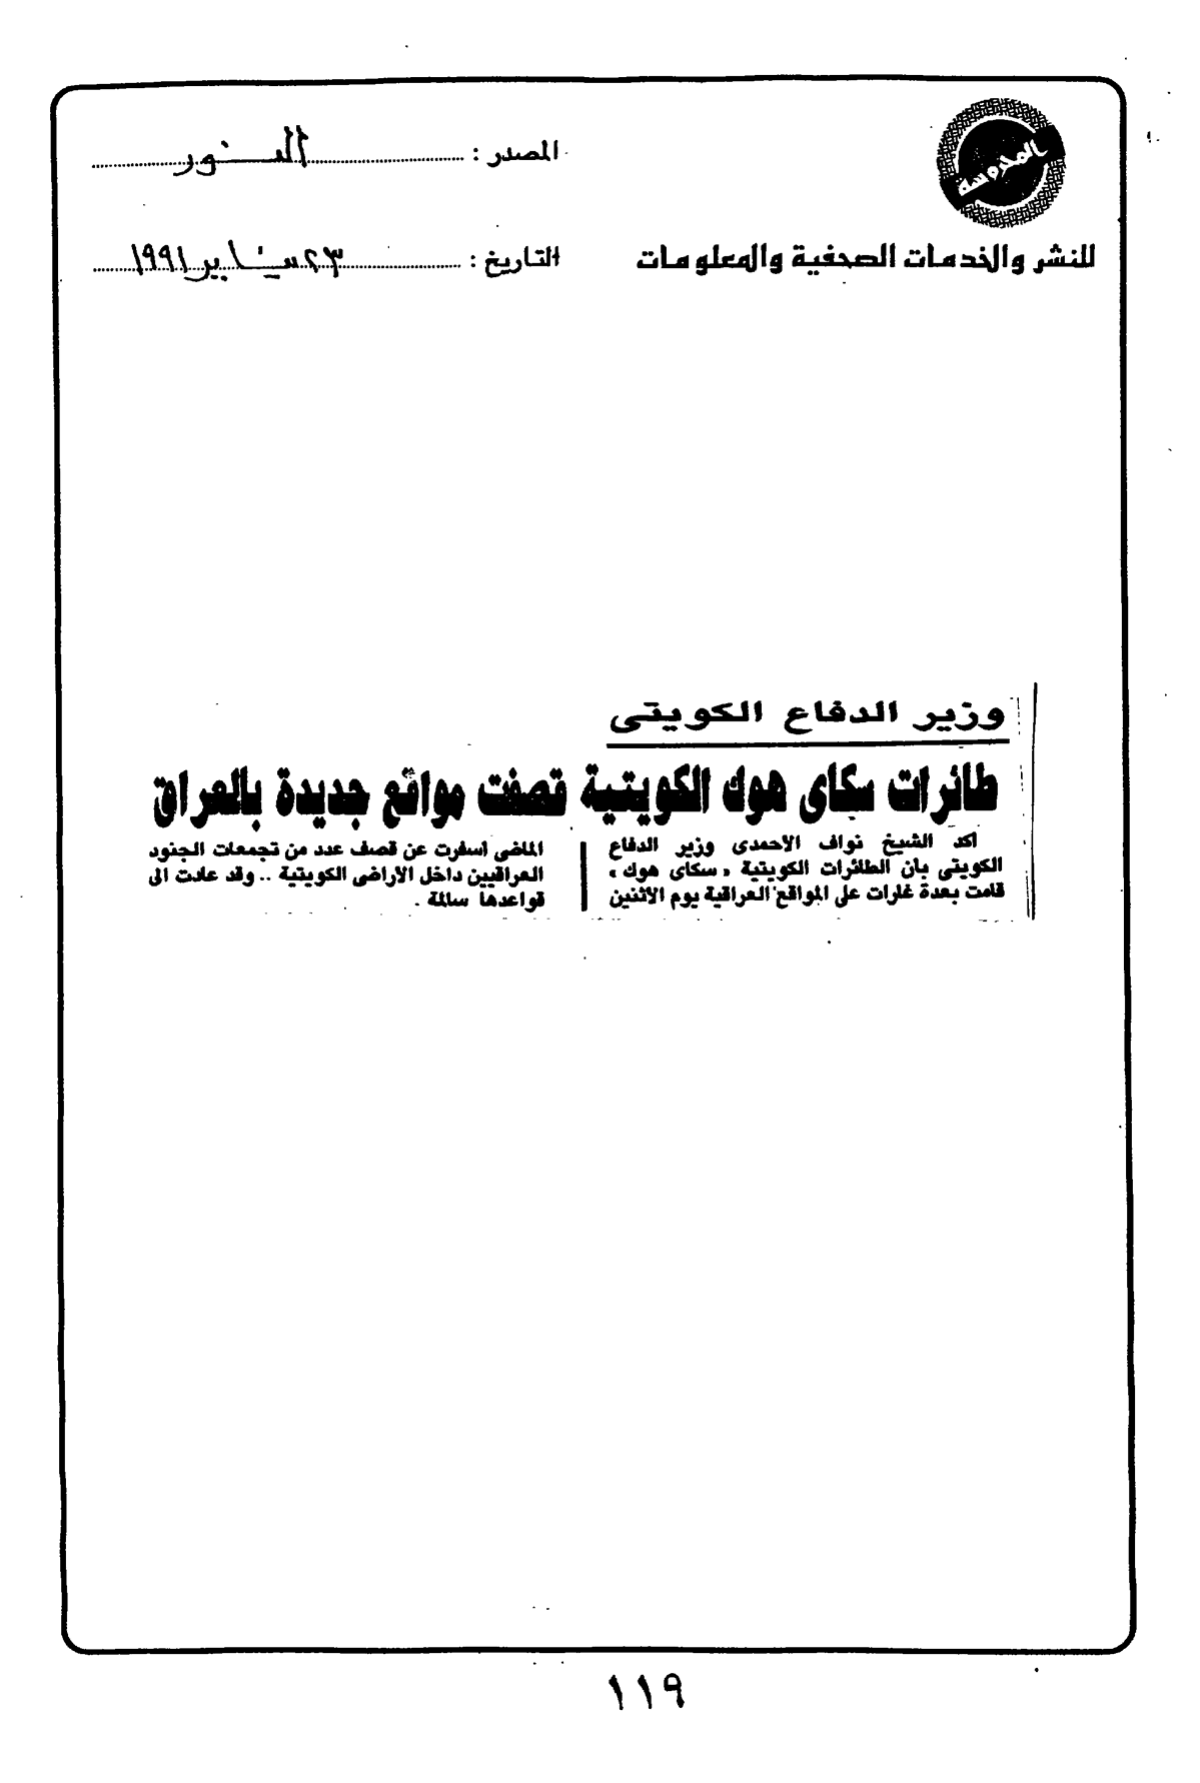 المحروسة
للنشر والخدمات الصحفية والمعلومات
المصدر : النور
التاريخ : ٢٣ يناير ١٩٩١
وزير الدفاع الكويتى
طائرات سكاى هوك الكويتية قصفت مواقع جديدة بالعراق
اكد الشيخ نواف الاحمدى وزير الدفاع
الكويتى بأن الطائرات الكويتية « سكاى هوك »
قامت بعدة غارات على المواقع العراقية يوم الاثنين
الماضى اسفرت عن قصف عدد من تجمعات الجنود
العراقيين داخل الاراضى الكويتية .. وقد عادت الى
قواعدها سالمة .
١١٩